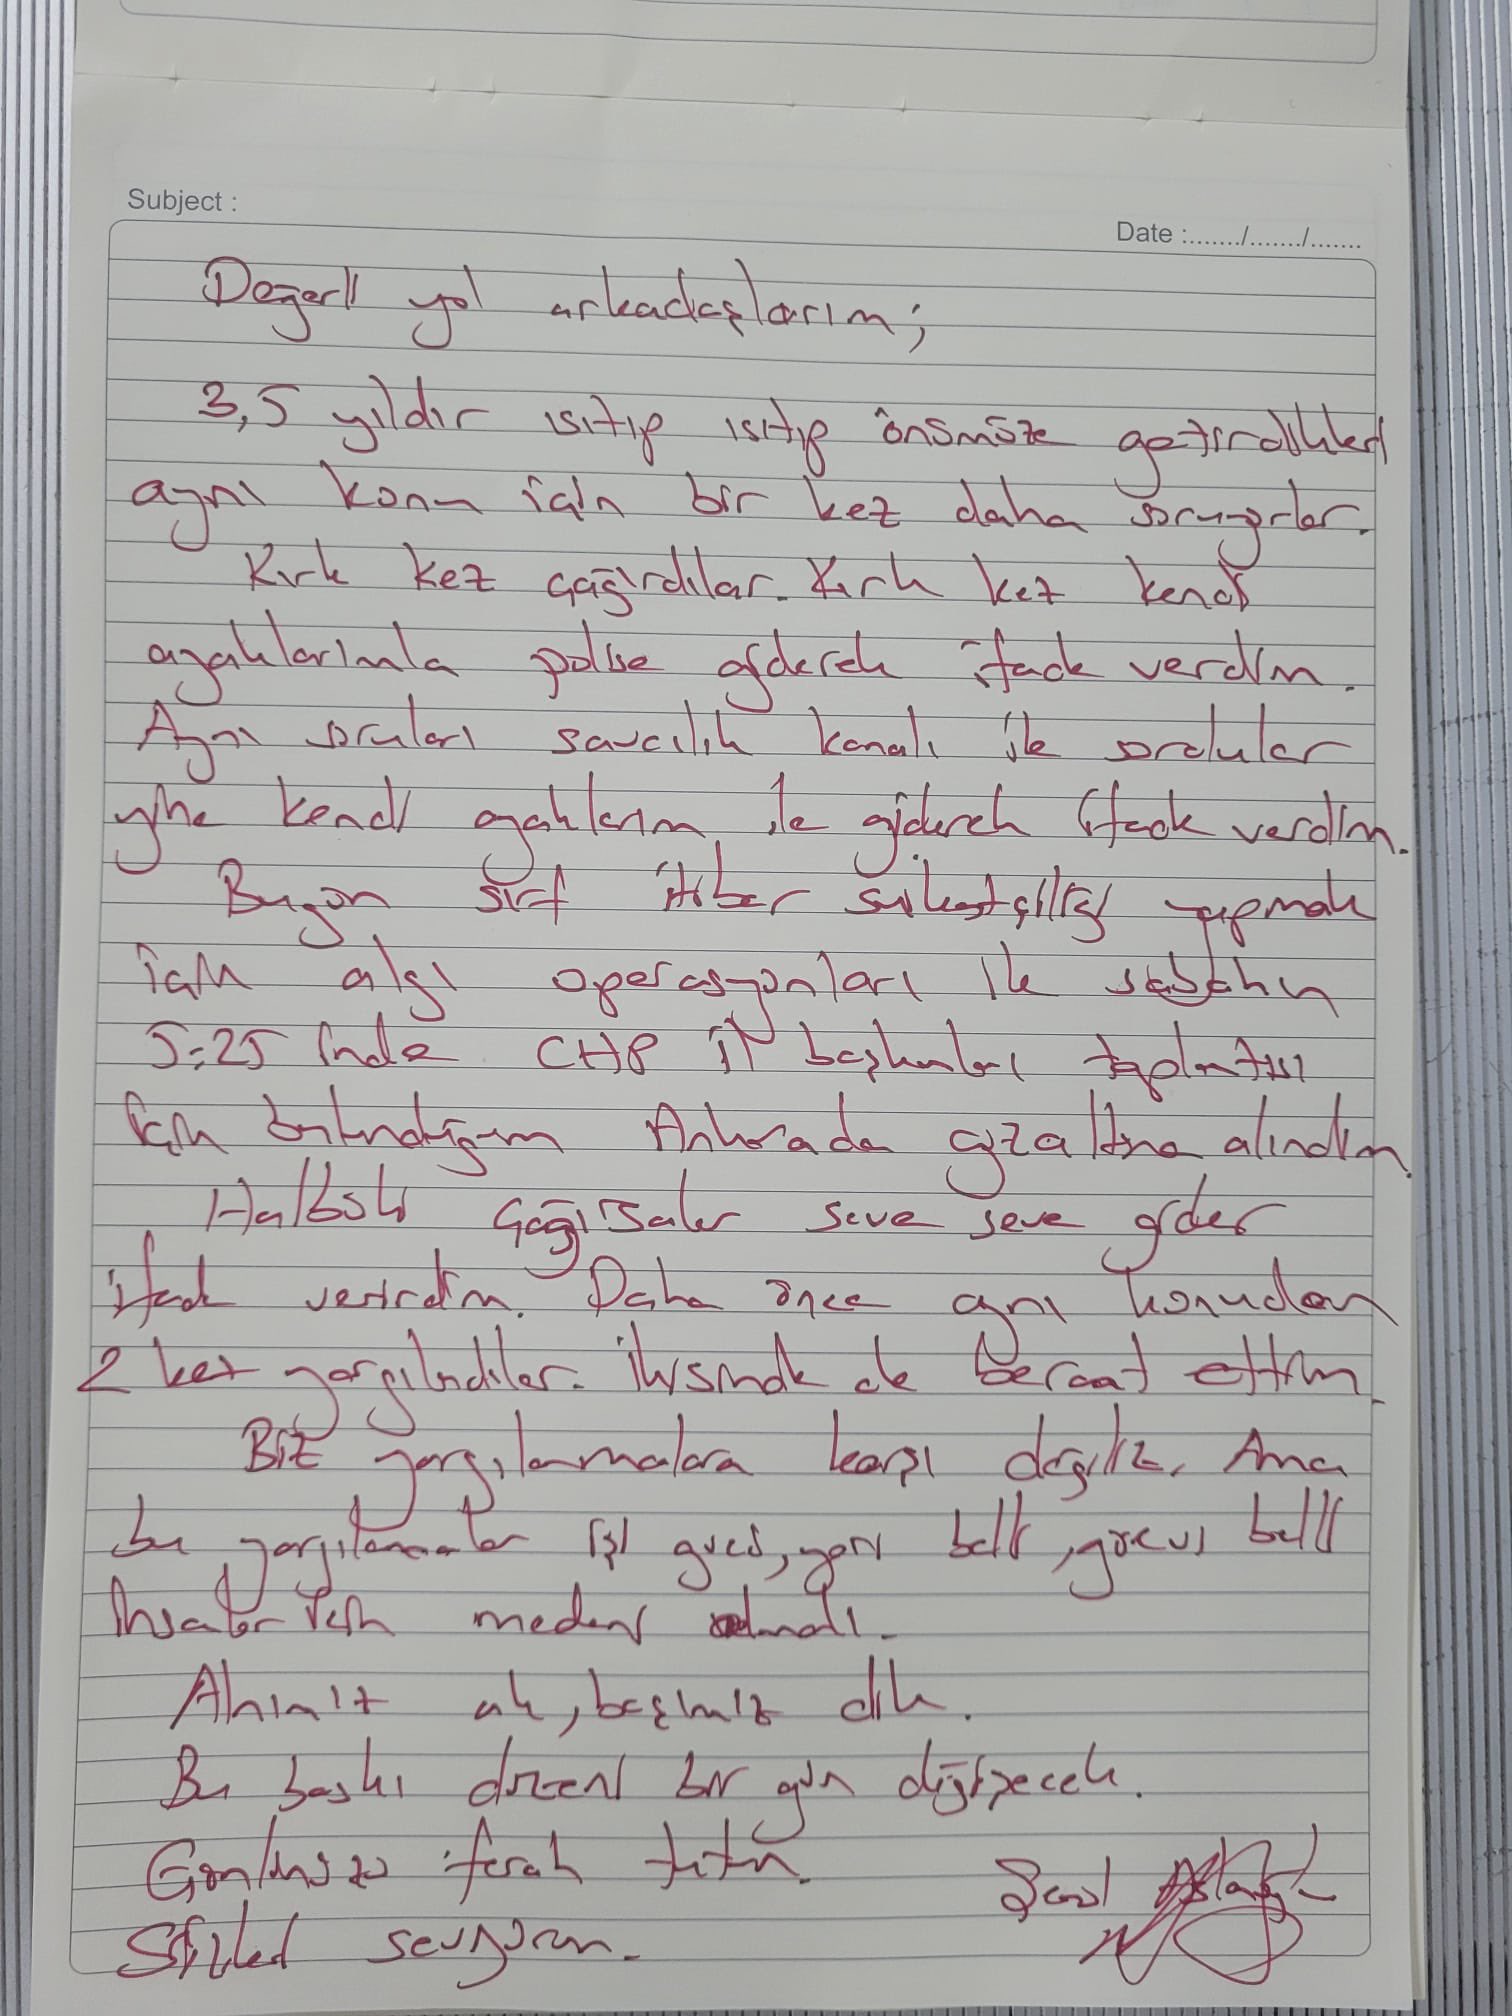 Subject :
Date :......./......./.......
Değerli yol arkadaşlarım;
3,5 yıldır ısıtıp ısıtıp önümüze getirdikleri
aynı konu için bir kez daha soruyorlar.
Kırk kez çağırdılar. Kırk kez kendi
ayaklarımla polise giderek ifade verdim.
Aynı soruları savcılık kanalı ile sordular
yine kendi ayaklarım ile giderek ifade verdim.
Bugün sırf itibar suikastçiliği yapmak
için algı operasyonları ile sabahın
5:25 inde CHP il başkanları toplantısı
için bulunduğum Ankarada gözaltına alındım.
Halbuki çağırsalar seve seve gider
ifade verirdim. Daha önce aynı konudan
2 kez yargıladılar. İkisinde de beraat ettim.
Biz yargılanmalara karşı değiliz. Ama
bu yargılanmalar işi gücü, yeri belli, görevi belli
insanlar için medeni olmalı.
Alnımız ak, başımız dik.
Bu baskı düzeni bir gün değişecek.
Gönlünüzü ferah tutun.
Sizleri seviyorum.
Şenol Aslanoğlu